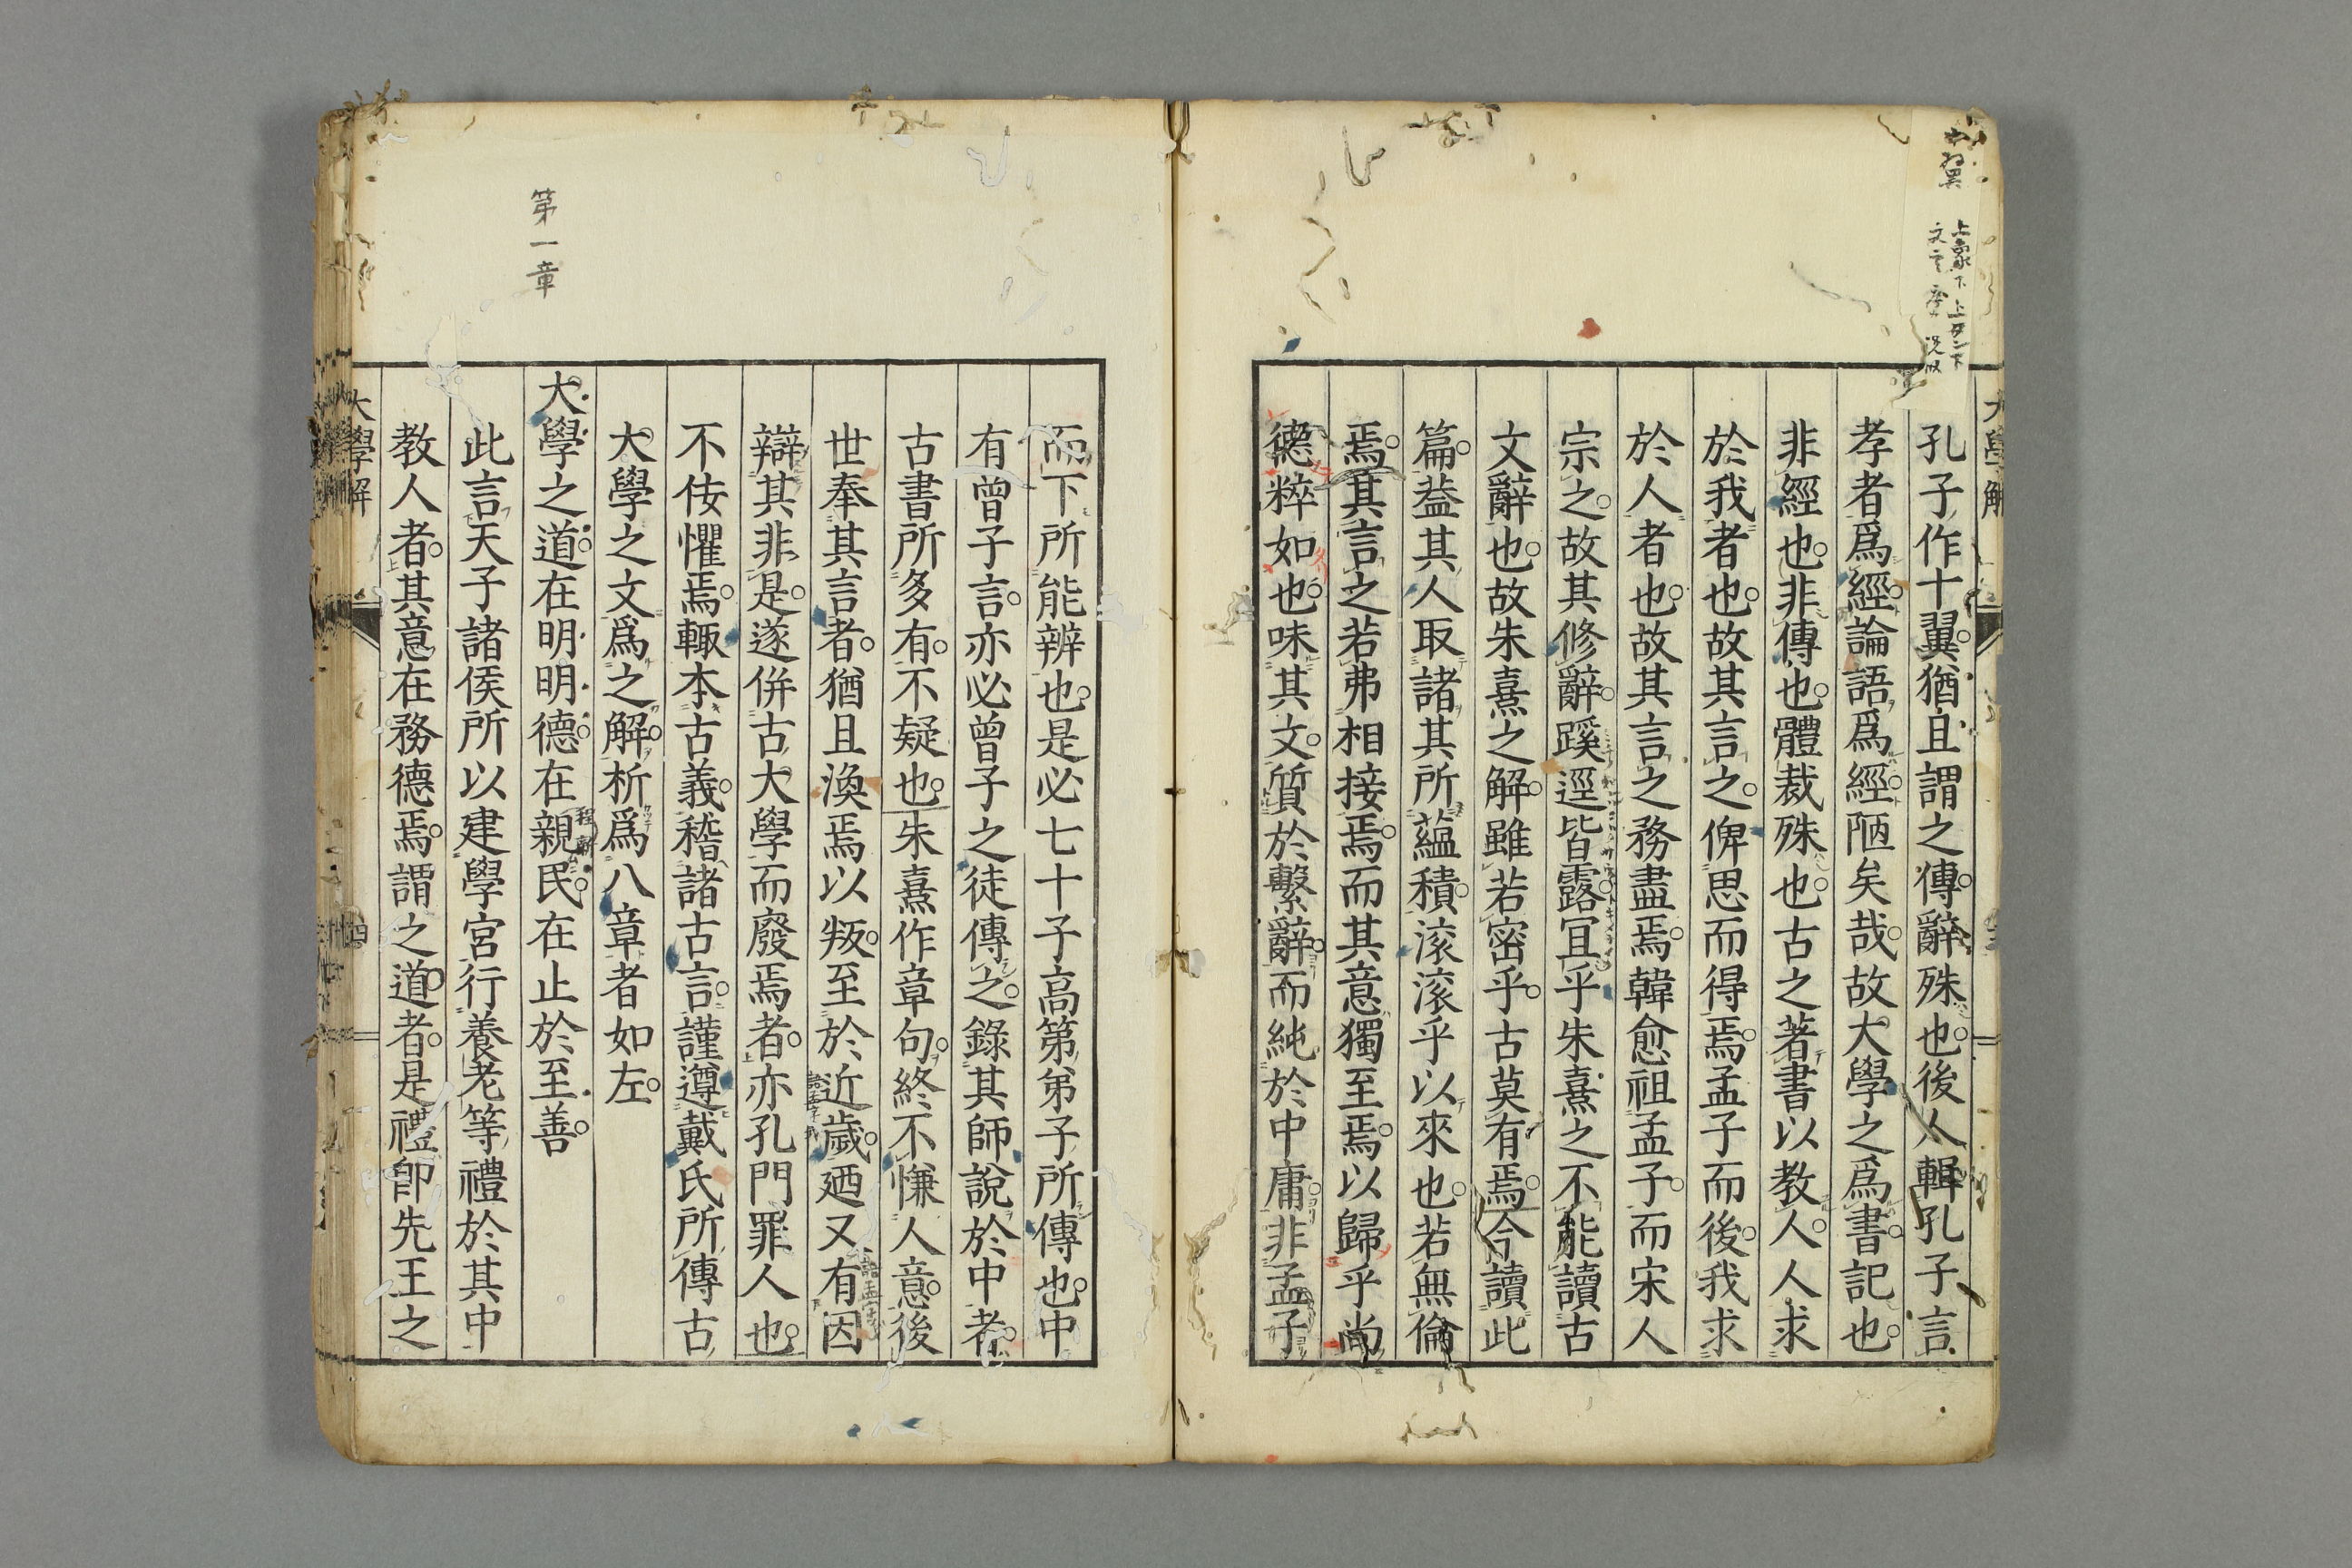 孔子作十翼猶且謂之傳辭殊也後人輯孔子言
孝者爲經論語爲經陋矣哉故大學之爲書記也
非經也非傳也體裁殊也古之著書以教人人求
於我者也故其言之俾思而得焉孟子而後我求
於人者也故其言之務盡焉韓愈祖孟子而宋人
宗之故其修辭蹊逕皆露冝乎朱熹之不能讀古
文辭也故朱熹之解雖若密乎古莫有焉今讀此
篇葢其人取諸其所蘊積滚滚乎以來也若無倫
焉其言之若弗相接焉而其意獨至焉以歸乎尚
德粹如也味其文質於繫辭而純於中庸非孟子
而下所能辨也是必七十子高第弟子所傳也中
有曾子言亦必曾子之徒傳之錄其師說於中者
古書所多有不疑也朱熹作章句終不慊人意後
世奉其言者猶且渙焉以叛至於近歲廼又有因
辯其非是遂併古大學而廢焉者亦孔門罪人也
不佞懼焉輙本古義稽諸古言謹遵戴氏所傳古
大學之文爲之解析爲八章者如左
第一章
大學之道在明明德在親民在止於至善
此言天子諸侯所以建學宮行養老等禮於其中
教人者其意在務德焉謂之道者是禮卽先王之
大學解